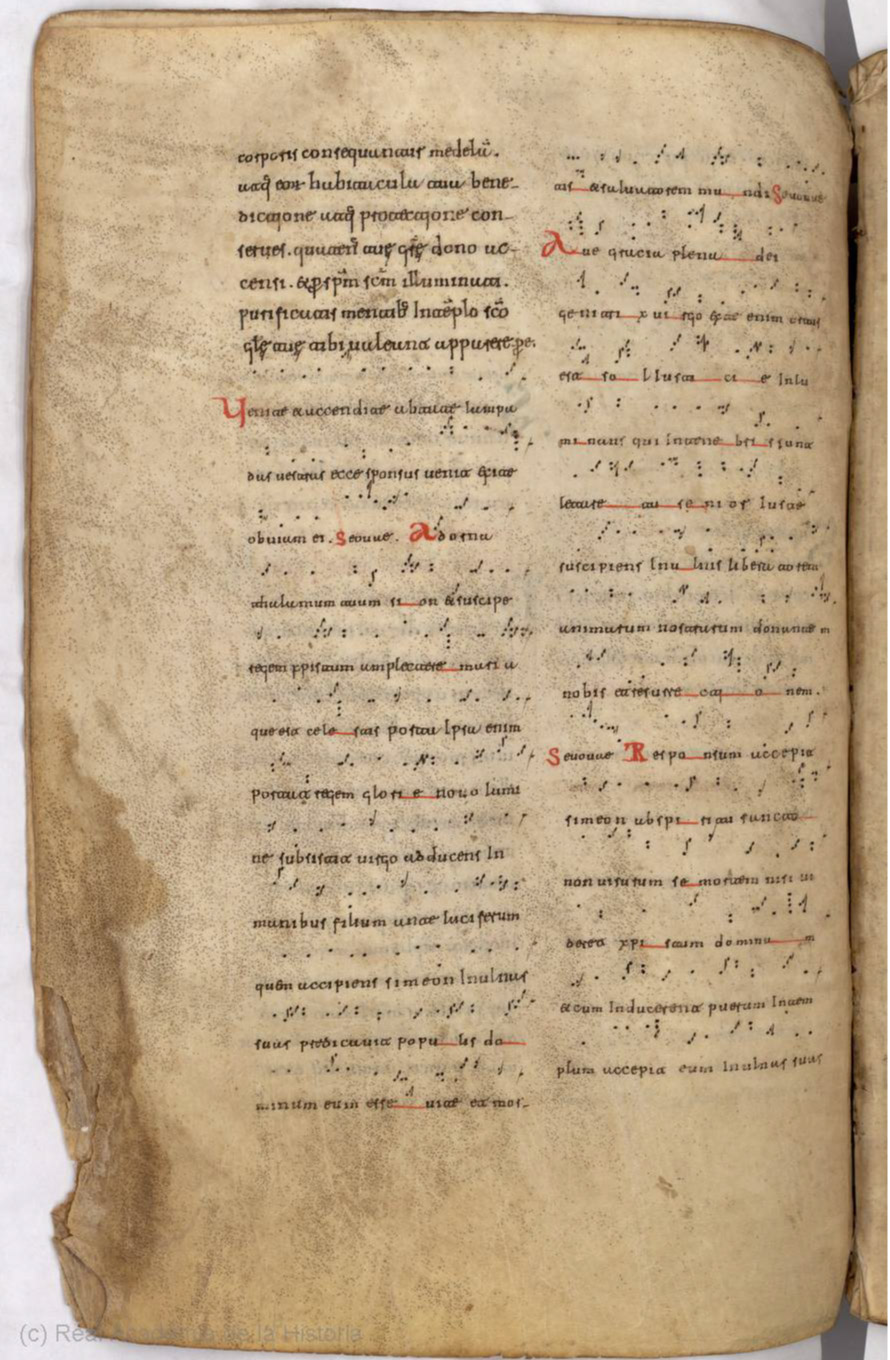 corporis consequantur medelā.
atq̄ eor habitacula tua bene-
dictione atq̄ protectione con-
serues. quatenus tuę gr̄ę dono ac-
censi. & p sp̄m sc̄m illuminati.
purificatis mentib; In tēplo sc̄o
gl̄ę tuę tibi ualeant apparere. per.
Uenite & accendite ubatae lampa
das uestras ecce sponsus uenit exite
obuiam ei. Seouae. Adorna
thalamum tuum si on & suscipe
regem xpistum amplectere mari a
que est cele stis porta Ipsa enim
portat regem glori e nouo lumi
ne subsistit uirgo adducens In
manibus filium ante luciferum
quem accipiens simeon In ulnas
suas predicauit popu lis do
minum eum esse uite et mor-
tis & saluatorem mu ndi Seuouae
Aue gracia plena dei
genitri x ui rgo ex te enim ortus
est so l Iusti ci e Inlu
minans qui In tene bri s sunt
letare tu se ni or Iuste
suscipiens In u lnis liberatorem
animarum nostrarum donantem
nobis et resurre cti o nem.
Seuouae Respo nsum accepit
simeon ab spi ritu sancto
non uisurum se mortem nisi ui
deret xpi stum dominu m
& cum Inducerent puerum In tem
plum accepit eum In ulnas suas
(c) Real Academia de la Historia